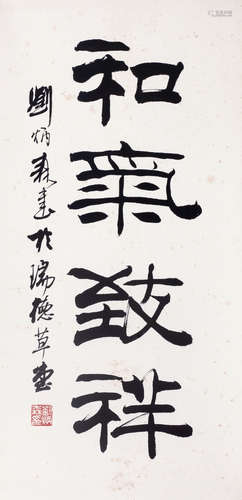 和氣致祥
劉炳森書於瑞德草堂